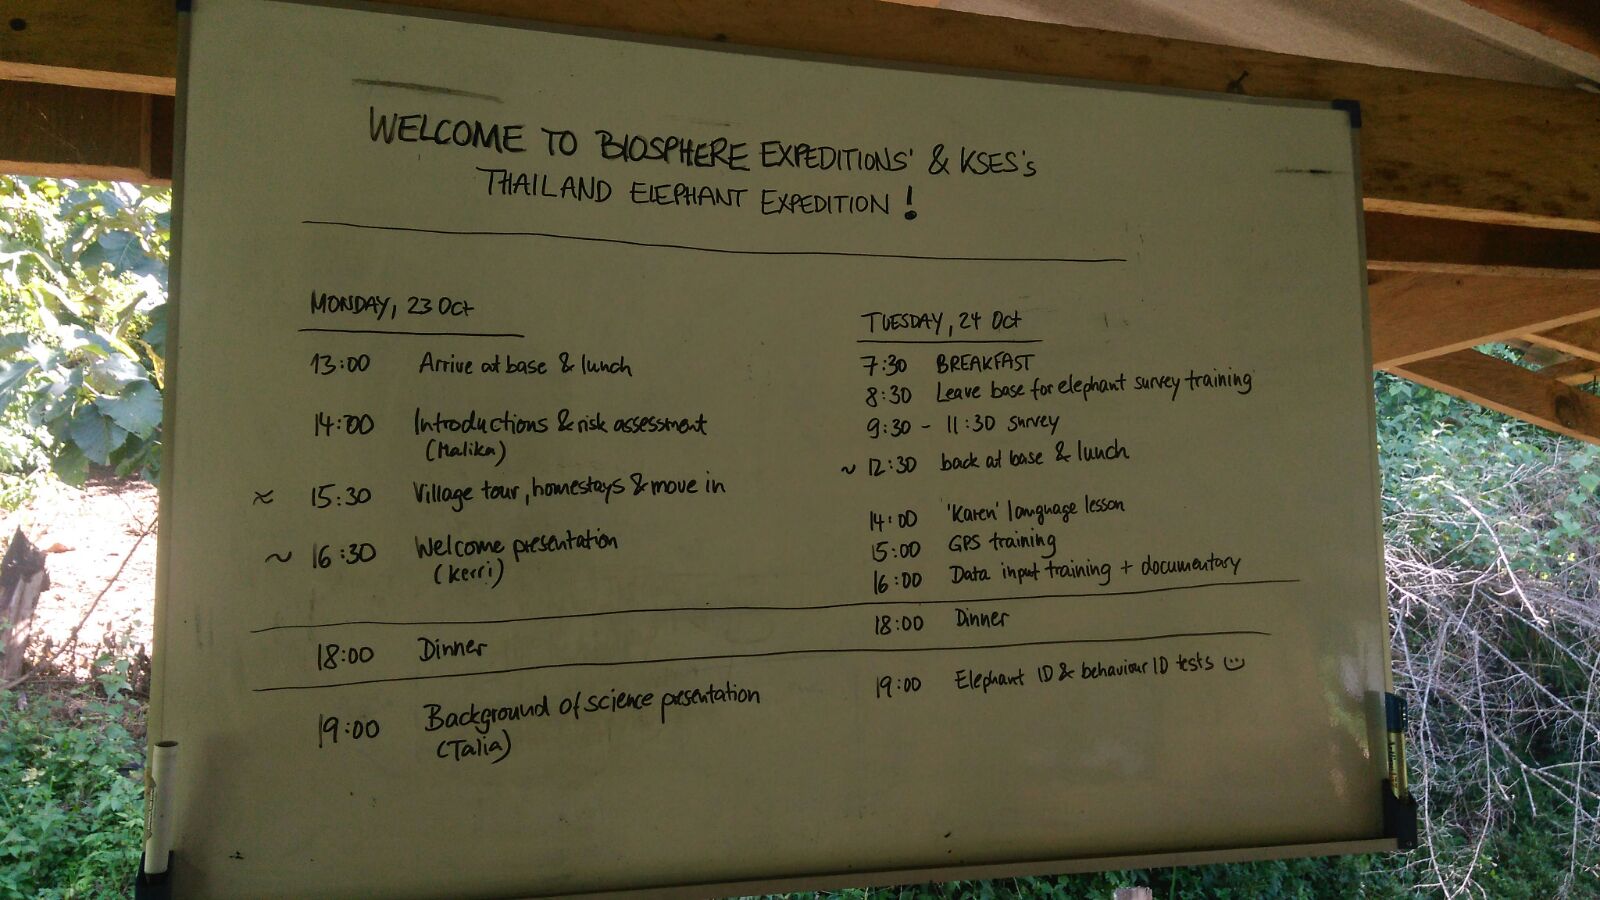 WELCOME TO BIOSPHERE EXPEDITIONS' & KSES's
THAILAND ELEPHANT EXPEDITION!
MONDAY, 23 Oct
13:00 Arrive at base & lunch
14:00 Introductions & risk assessment
(Malika)
≈ 15:30 Village tour, homestays & move in
~ 16:30 Welcome presentation
(Kerri)
18:00 Dinner
19:00 Background of science presentation
(Talia)
TUESDAY, 24 Oct
7:30 BREAKFAST
8:30 Leave base for elephant survey training
9:30 - 11:30 survey
~ 12:30 back at base & lunch
14:00 'Karen' language lesson
15:00 GPS training
16:00 Data input training + documentary
18:00 Dinner
19:00 Elephant ID & behaviour ID tests ☺